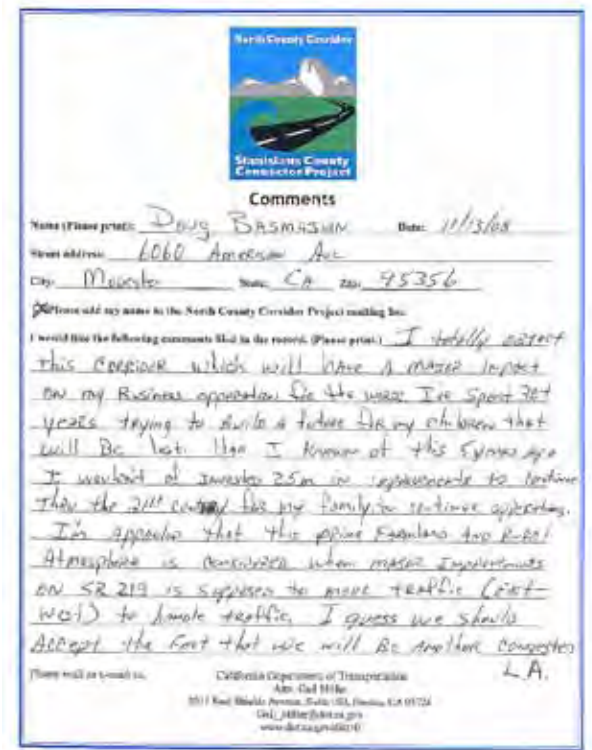 North County Corridor
Stanislaus County
Connector Project
Comments
Name (Please print): Doug Date: 11/13/08
Street address: 6060 American Ave
City: Modesto State: CA Zip: 95356
Please add my name to the North County Corridor Project mailing list.
I would like the following comments filed in the record. (Please print.) I totally object
this corridor which will have a major impact
on my Business operation for the worse I've spent 30+
years trying to build a future for my children that
will Be lost. Had I known of this 5 years ago
I wouldn't of invested 2.5m in improvements to continue
the 21st century for my family to continue operating.
I'm appalled that this prime Farmland and Rural
Atmosphere is considered when major Improvements
on SR 219 is supposed to move traffic (east-
west) to handle traffic. I guess we should
Accept the Fact that we will Be Another Congested
L.A.
Please mail or e-mail to:
California Department of Transportation
Attn: Gail Miller
Avenue, Suite Fresno, CA 93726
Gail_Miller@dot.ca.gov